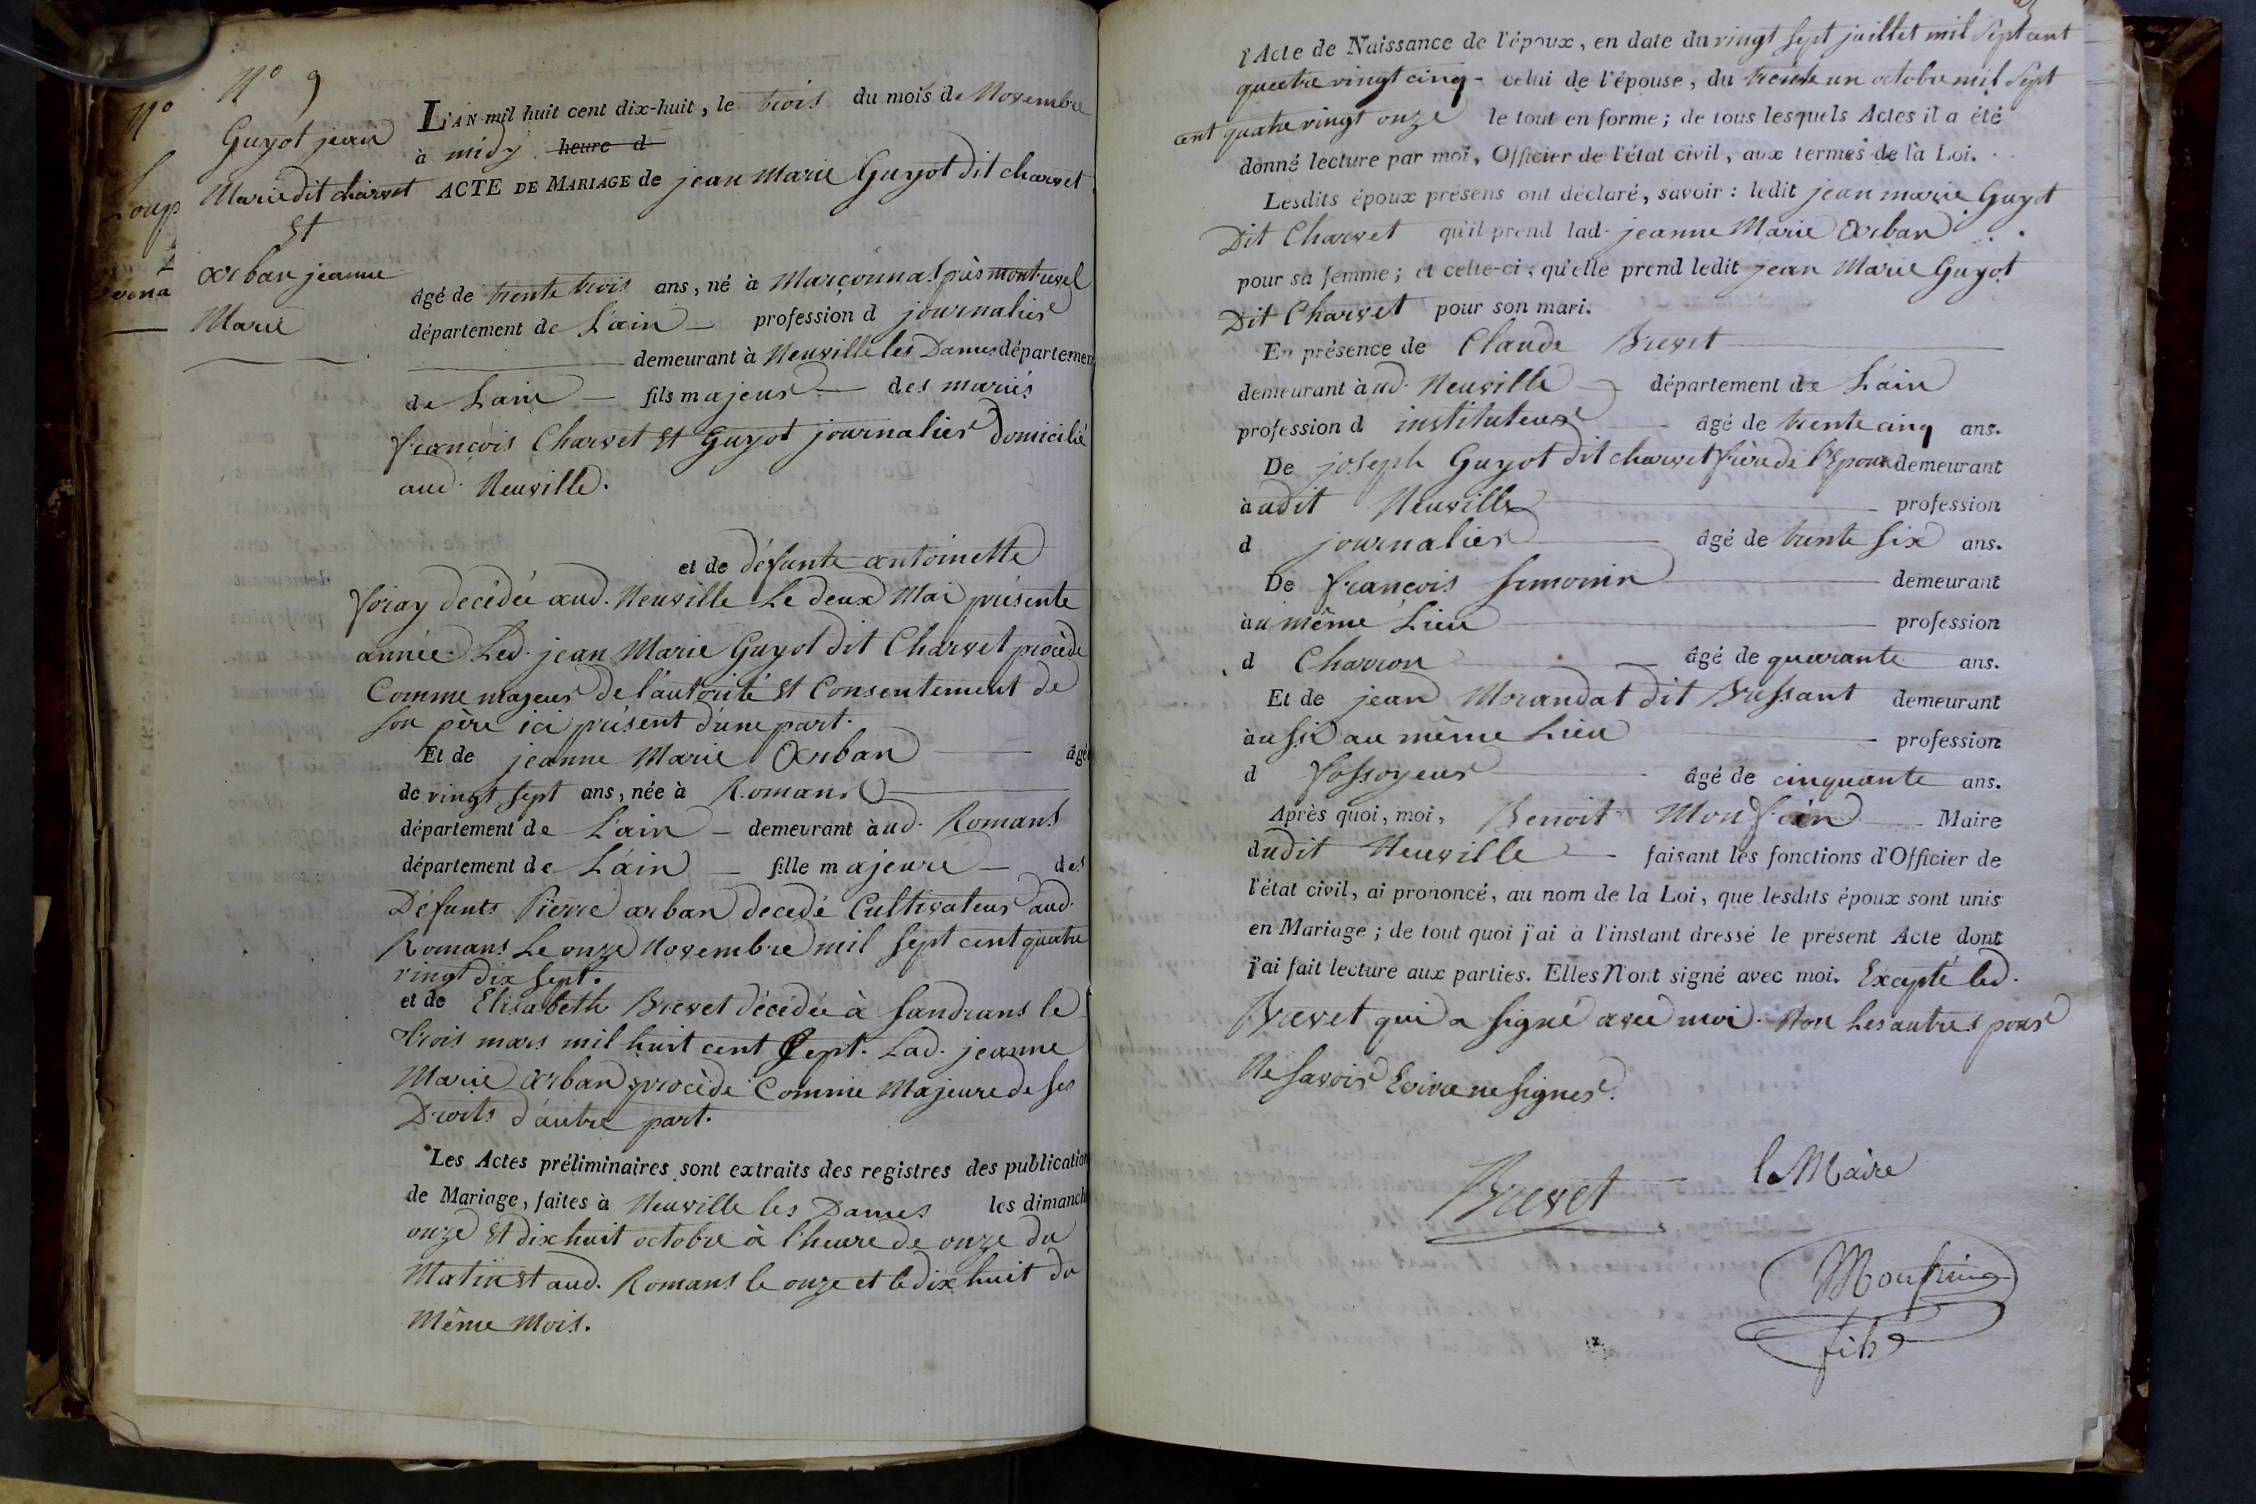 N°
Loup
N° 9
Guyot jean
Marie dit charvet
Et
Arban jeanne
Marie
L'AN mil huit cent dix-huit, le trois du mois de Novembre
à midy heure d
ACTE DE MARIAGE de jean Marie Guyot dit charvet
âgé de trente trois ans, né à Marçonnas près montrevel
département de L'ain profession d journalier
demeurant à Neuville les Dames départemen
de Lain fils majeur des mariés
françois Charvet Et Guyot journalier domicilié
aud. Neuville.
et de défunte antoinette
foray decédée aud. Neuville Le deux Mai présente
année. Led. jean Marie Guyot dit Charvet procède
Comme majeur de l'autorité Et Consentement de
son père ici présent d'une part.
Et de jeanne Marie Arban âgé
de vingt sept ans, née à Romans
département de L'ain demeurant à ud. Romans
département de L'ain fille majeure des
Défunts Pierre arban decedé Cultivateur aud.
Romans Le onze Novembre mil sept cent quatre
vingt dix sept.
et de Elisabeth Brevet décédée à Sandrans le
trois mars mil huit cent Sept. Lad. jeanne
Marie Arban procède Comme Majeure de ses
Droits d'autre part.
Les Actes préliminaires sont extraits des registres des publication
de Mariage, faites à Neuville les Dames les dimanch
onze Et dix huit octobre à l'heure de onze du
Matin Et aud. Romans le onze et le dix huit du
Même Mois.
l'Acte de Naissance de l'époux, en date du vingt sept juillet mil sept cent
quatre vingt cinq - celui de l'épouse, du trente un octobre mil Sept
cent quatre vingt onze le tout en forme; de tous lesquels Actes il a été
donné lecture par moi, Officier de l'état civil, aux termes de la Loi.
Lesdits époux présens ont déclaré, savoir: ledit jean marie Guyot
Dit Charvet qu'il prend lad. jeanne Marie Arban
pour sa femme; et celle-ci, qu'elle prend ledit jean Marie Guyot
Dit Charvet pour son mari.
En présence de Claude Brevet
demeurant à ud. Neuville département de L'ain
profession d instituteur âgé de trente cinq ans.
De joseph Guyot dit charvet frère de l'Epoux demeurant
à udit Neuville profession
d journalier âgé de trente six ans.
De françois Simonin demeurant
à u même Lieu profession
d Charron âgé de quarante ans.
Et de jean Morandat dit Bressant demeurant
à ussi au même Lieu profession
d fossoyeur âgé de cinquante ans.
Après quoi, moi, Benoit Monfrin Maire
dudit Neuville faisant les fonctions d'Officier de
l'état civil, ai prononcé, au nom de la Loi, que lesdits époux sont unis
en Mariage; de tout quoi j'ai à l'instant dressé le présent Acte dont
j'ai fait lecture aux parties. Elles N'ont signé avec moi. Excepté led.
Brevet qui a signé avec moi. Non Les autres pour
Ne savoir Ecrire ne signer.
Brevet
le Maire
fils